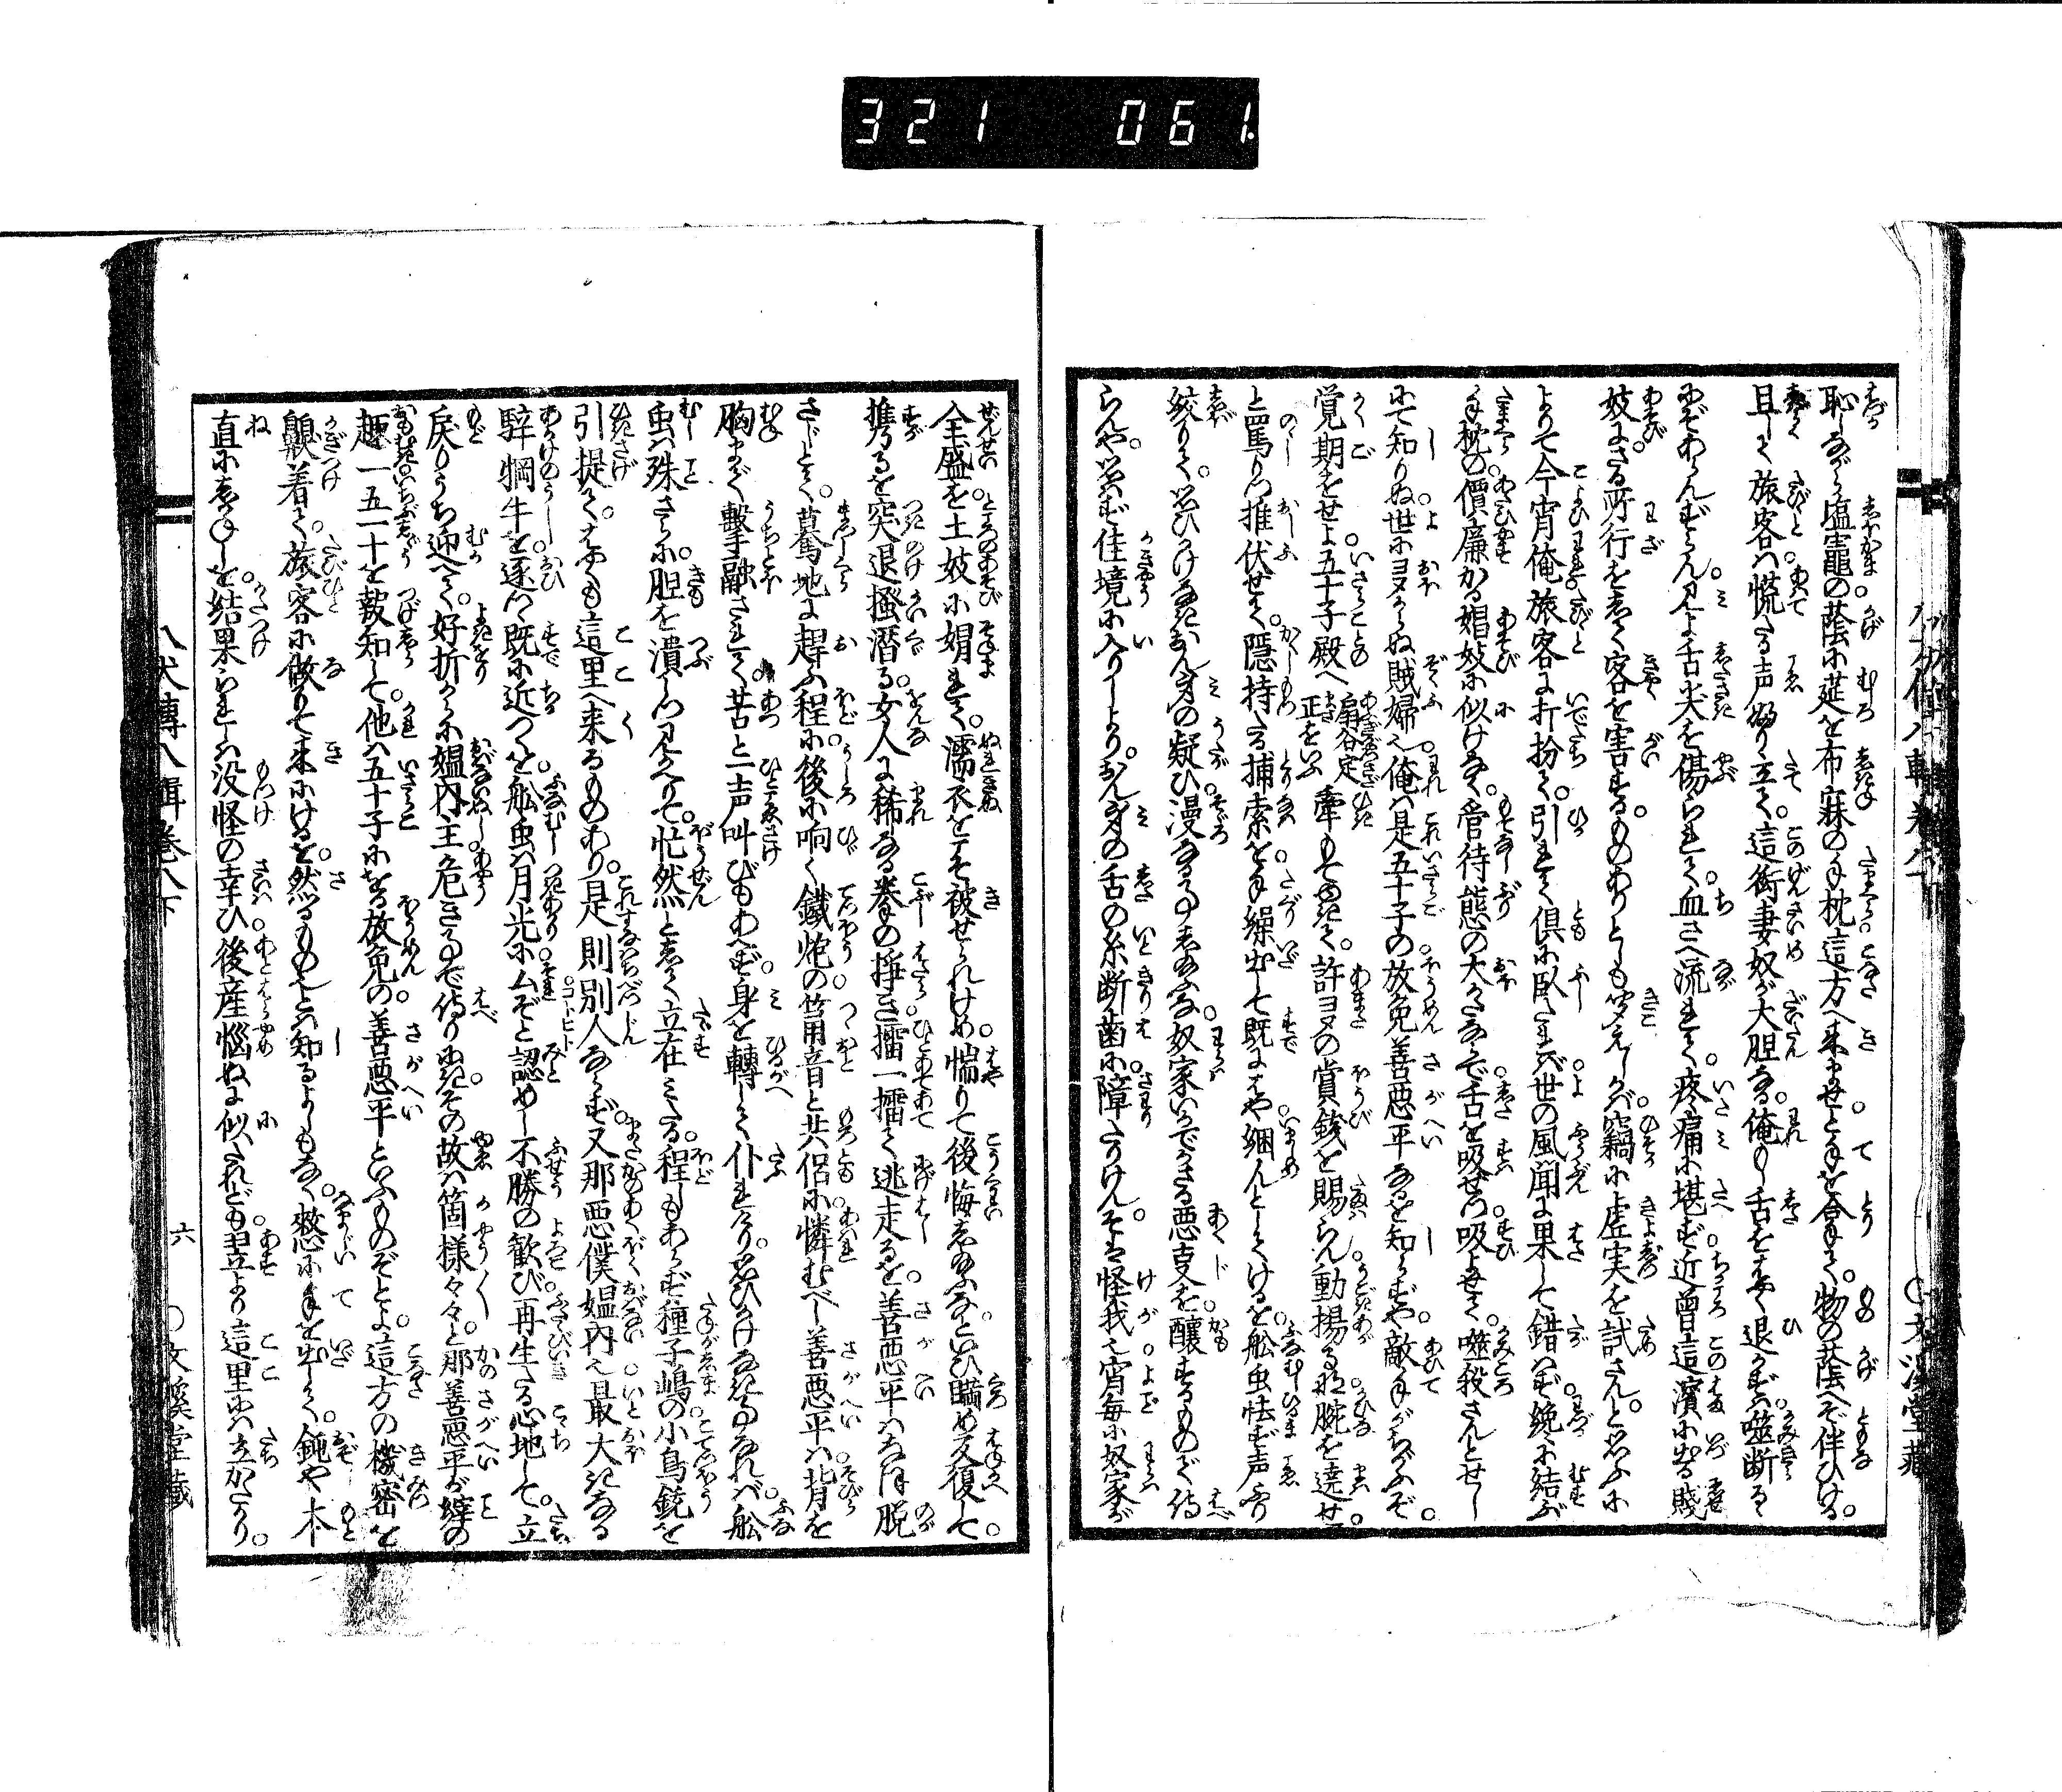 321 061.
恥しながら塩竈の蔭に莚を布寐の手枕這方へ来ませと手を合して物の蔭へぞ伴ひける。
且して旅客は慌たる声ふり立て。這衒妻奴が大胆なる。俺も舌をはやく退かずは噬断るる
にぞあらんずらん。見よ舌尖を傷られて。血さへ流れて。疼痛に堪ず近曽這濱に出る賤
妓よ。さる所行をして客を害する。ものありとしも聞えしかば竊に虚実を試さんと思ふに
よりて今宵俺旅客に打扮て。引れて倶に臥たれば世の風聞に果して錯はず。纔に結ぶ
手枕の價廉かる娼妓に似げなく。管待態の大かたならで舌を吸せつ吸よせて。噬殺さんとせし
にて知りぬ世にヨヌからぬ賊婦也。俺は是五十子の放免善悪平なるを知らずや。敵手がちがふぞ。
覚期をせよ五十子殿へ扇谷定正をいふ牽もてゆきて。許ヨタの賞銭を賜らん動揚るな腕を遶せ
と罵りつ推伏せて。隠持たる捕索を手繰出して既にはや綑んとしてけるを。舩虫怯ず声ふり
絞りて。思ひかけなきおん身の疑ひ漫なる事しのたまふな。奴家いかでかさる悪事を。醸するものぞ侍
らんや。思はず佳境に入りしより。おん身の舌の糸断歯に障たりけん。そは怪我也宵毎に奴家が
全盛を土妓に娼まれて。濡衣をこそ被せられけめ。惴りて後悔したまふなといひ瞞め反復して。
携るを突退掻潜る女人に稀なる拳の掙き擂一擂て逃走るを。善悪平はなほ脱
さじとて。驀地に趕ふ程に後に响く鐵炮の筒音と共侶に憐むべし善悪平は背を
胸まで撃融されて。苦と一声叫びもあへず。身を轉して仆れけり。思ひかけなき事なれば舩
虫は殊さらに。胆を潰しつ見かへりて。忙然として立在みたる。程しもあらず種子嶋の小鳥銃を
引提て。はやも這里へ来るものあり。是則別人ならず。又那悪僕媼内也。最大きなる
騂犅牛を逐つつ既に近づくを。舩虫は月光にムぞと認めし不勝の歓び再生たる心地して。立
戻りうち迎へて。好折からに媼内主。危き事で侍りにき。その故は箇様々々と那善悪平が縡の
趣一五一十を報知して。他は五十子にをる放免の。善悪平といふものぞとよ。這方の機密を
齅着て。旅客に倣りて来にけるを。然るものとは知るよしもなく憖に手を出して。鈍や本
直にしてしを結果られしは没怪の幸ひ後産悩ぬに似たれども。豊より這里には立がたかり。
八犬傳八輯巻八下
六
文溪堂藏